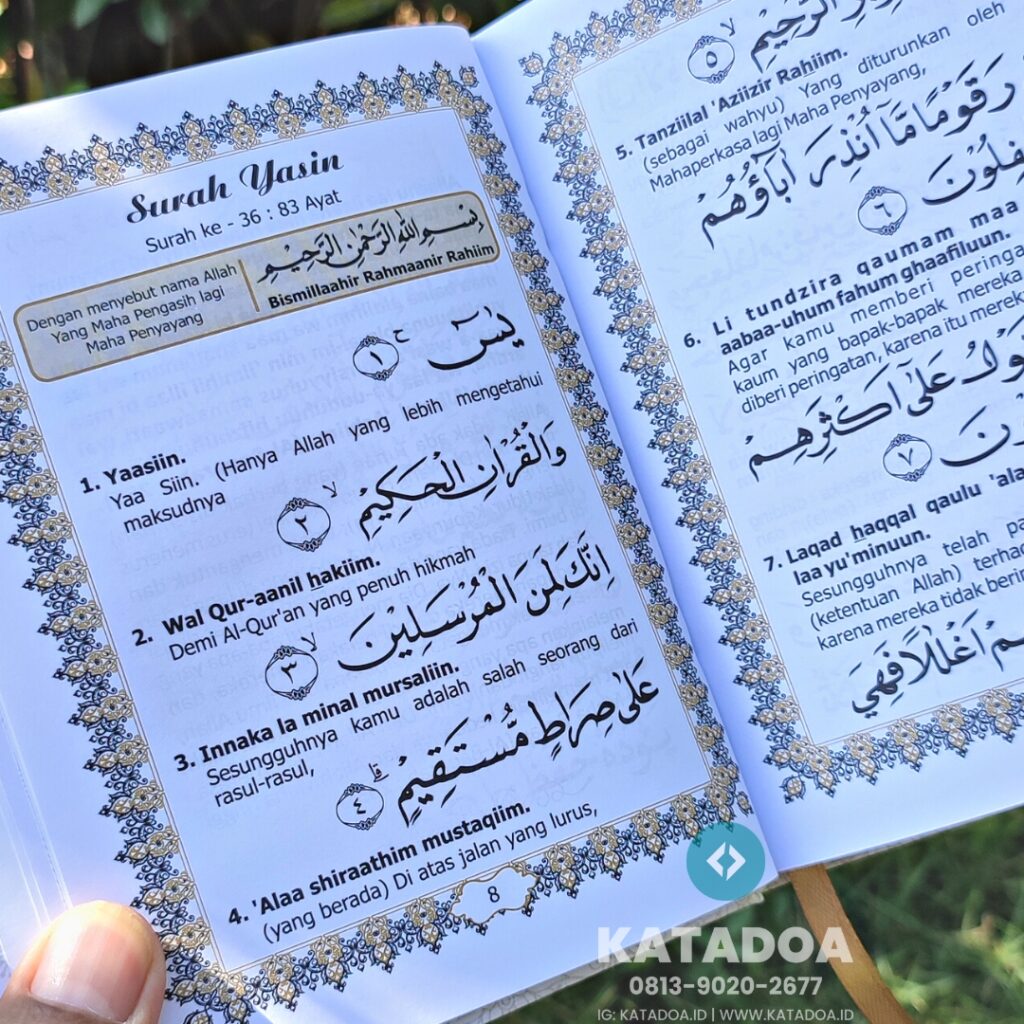 Surah Yasin
Surah ke - 36 : 83 Ayat
Dengan menyebut nama Allah
Yang Maha Pengasih lagi
Maha Penyayang
بِسْمِ اللّٰهِ الرَّحْمٰنِ الرَّحِيْمِ
Bismillaahir Rahmaanir Rahiim
يٰسۤ ۚ ١
1. Yaasiin.
Yaa Siin. (Hanya Allah yang lebih mengetahui
maksudnya
وَالْقُرْاٰنِ الْحَكِيْمِ ٢
2. Wal Qur-aanil hakiim.
Demi Al-Qur'an yang penuh hikmah
اِنَّكَ لَمِنَ الْمُرْسَلِيْنَ ٣
3. Innaka la minal mursaliin.
Sesungguhnya kamu adalah salah seorang dari
rasul-rasul,
عَلٰى صِرَاطٍ مُّسْتَقِيْمٍ ٤
4. 'Alaa shiraathim mustaqiim.
(yang berada) Di atas jalan yang lurus,
8
الرَّحِيْمِ ٥
5. Tanziilal 'Aziizir Rahiim.
(sebagai wahyu) Yang diturunkan oleh
Mahaperkasa lagi Maha Penyayang,
قَوْمًا مَّآ اُنْذِرَ اٰبَاۤؤُهُمْ
٦
6. Li tundzira qaumam maa
aabaa-uhum fahum ghaafiluun.
Agar kamu memberi
kaum yang bapak-bapak mereka
diberi peringatan, karena itu
عَلٰٓى اَكْثَرِهِمْ
٧
7. Laqad haqqal qaulu
laa yu'minuun.
Sesungguhnya telah
(ketentuan Allah)
karena mereka tidak
اَغْلٰلًا فَهِيَ
KATADOA
0813-9020-2677
IG: KATADOA.ID | WWW.KATADOA.ID